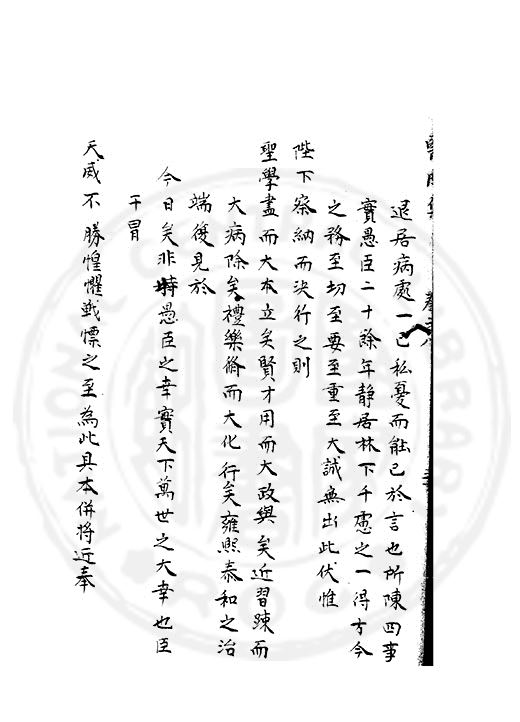 退居病處一己私憂而能已於言也所陳四事
實愚臣二十餘年靜居林下千慮之一得方今
之務至切至要至重至大誠無出此伏惟
陛下察納而決行之則
聖學盡而大本立矣賢才用而大政興矣近習踈而
大病除矣禮樂脩而大化行矣雍熙泰和之治
端復見於
今日矣非特愚臣之幸實天下萬世之大幸也臣
干冒
天威不勝惶懼戰慄之至為此具本併將近奉